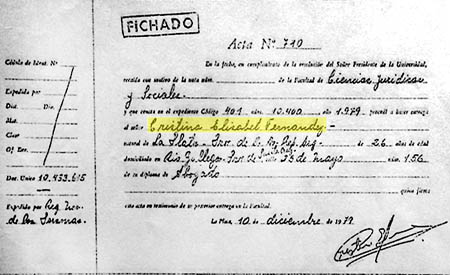 FICHADO
Acta Nº 710
En la fecha, en cumplimiento de la resolución del Señor Presidente de la Universidad,
recaída con motivo de la nota núm. de la Facultad de Ciencias Jurídicas
y Sociales
y que consta en el expediente Código 401 núm. 10.400 año 1979 procedí a hacer entrega
al señor Cristina Elisabet Fernandez
natural de La Plata de 26 años de edad
domiciliado en Río Gallegos 25 de Mayo núm. 156
de su diploma de Abogado
quien firma
esta acta en testimonio de su entrega en la Facultad.
La Plata, 10 de diciembre de 1979
Cédula de Ident. Nº
Expedida por
Dist. Div.
Mat.
Clase
Of. Enr.
Doc. Unico 10.433.615
Expedido por Reg. Nac.
de las Personas